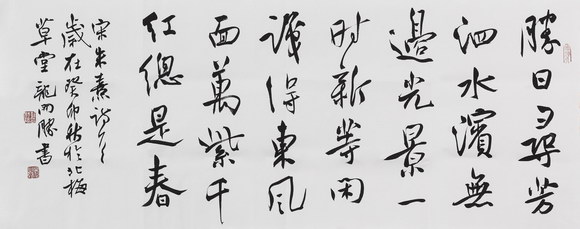 勝日尋芳
泗水濱無
邊光景一
时新等閑
識得東風
面萬紫千
紅總是春
宋朱熹詩
歲在癸卯秋於北梅
草堂龍雨勝書